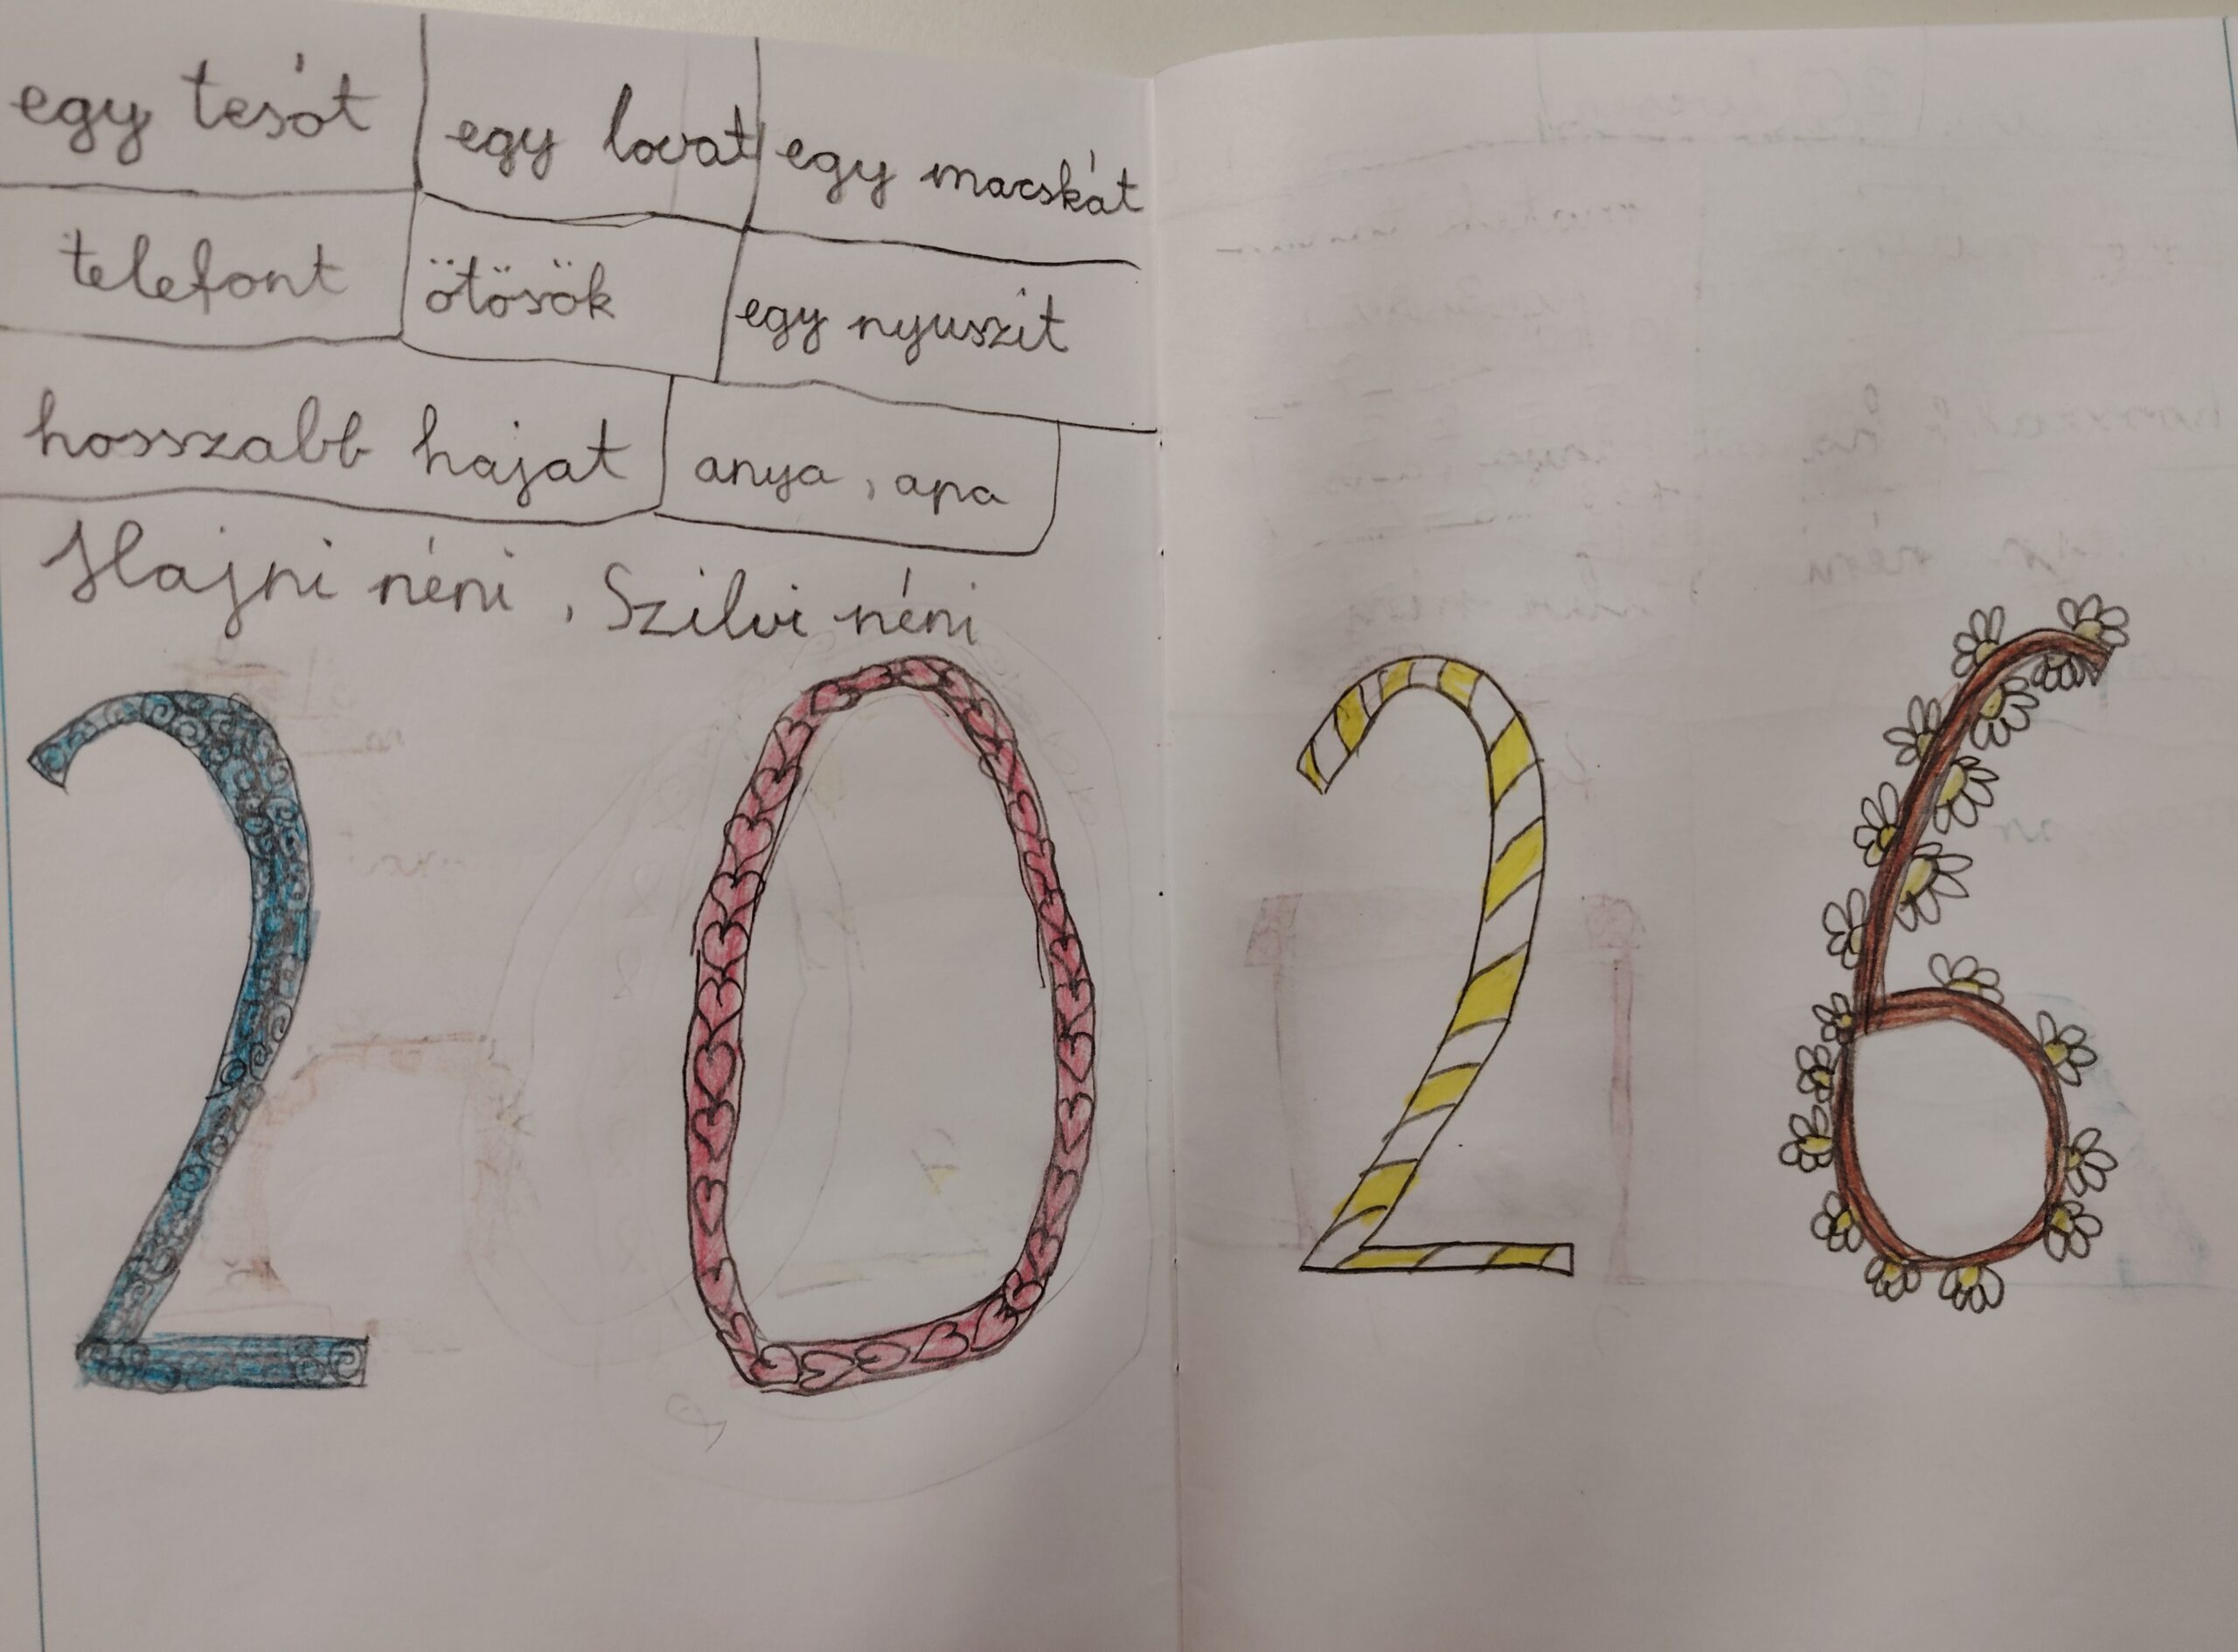 egy tesót egy lovat egy macskát
telefont ötösök egy nyuszit
hosszabb hajat anya, apa
Hajni néni, Szilvi néni
2026